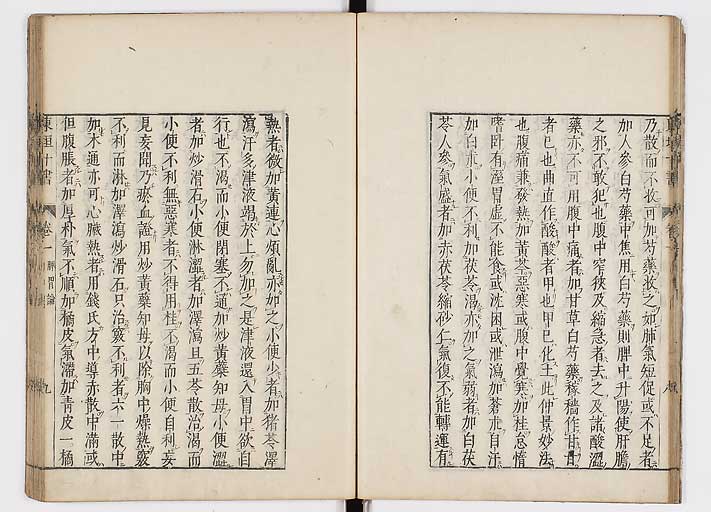 乃散而不收可加芍藥收之如肺氣短促或不足者
加人參白芍藥中焦用白芍藥則脾中升陽使肝膽
之邪不敢犯也腹中窄狹及縮急者去之及諸酸澀
藥亦不可用腹中痛者加甘草白芍藥稼穡作甘甘
者己也曲直作酸酸者甲也甲己化土此仲景妙法
也腹痛兼發熱加黃芩惡寒或腹中覺寒加桂怠惰
嗜卧有溼胃虛不能食或沈困或泄瀉加蒼朮自汗
加白朮小便不利加茯苓渴亦加之氣弱者加白茯
苓人參氣盛者加赤茯苓縮砂仁氣復不能轉運有
熱者微加黃連心煩亂亦加之小便少者加猪苓澤
瀉汗多津液竭於上勿加之是津液還入胃中欲自
行也不渴而小便閉塞不通加炒黃蘗知母小便澀
者加炒滑石小便淋澀者加澤瀉且五苓散治渴而
小便不利無惡寒者不得用桂不渴而小便自利妄
見妄聞乃瘀血證用炒黃蘗知母以除腎中燥熱竅
不利而淋加澤瀉炒滑石只治竅不利者六一散中
加木通亦可心臟熱者用錢氏方中導赤散中滿或
但腹脹者加厚朴氣不順加橘皮氣滯加青皮一橘
東垣十書 卷一 脾胃論 九